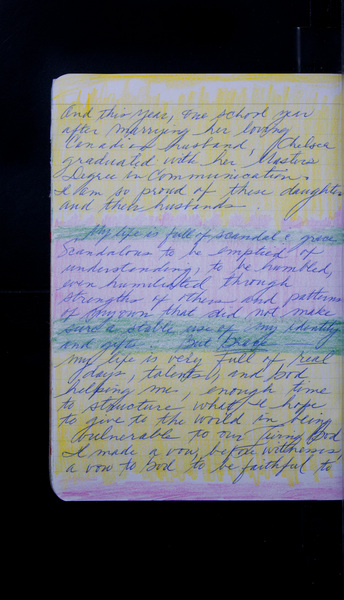 And this year, one school year
after marrying her loving
Canadian husband, Chelsea
graduated with her Masters
Degree in Communication.
I am so proud of these daughters
and their husbands.
My life is full of scandal & grace
Scandalous to be emptied of
understanding, to be humbled,
even humiliated through
strengths of others and patterns
of my own that did not make
sure a stable use of my identity
and gifts. But
my life is very full of real
days, talents, and God
helping me, enough time
to structure what I hope
to give to the world in being
vulnerable to our living God
I made a vow, before witnesses,
a vow to God to be faithful to